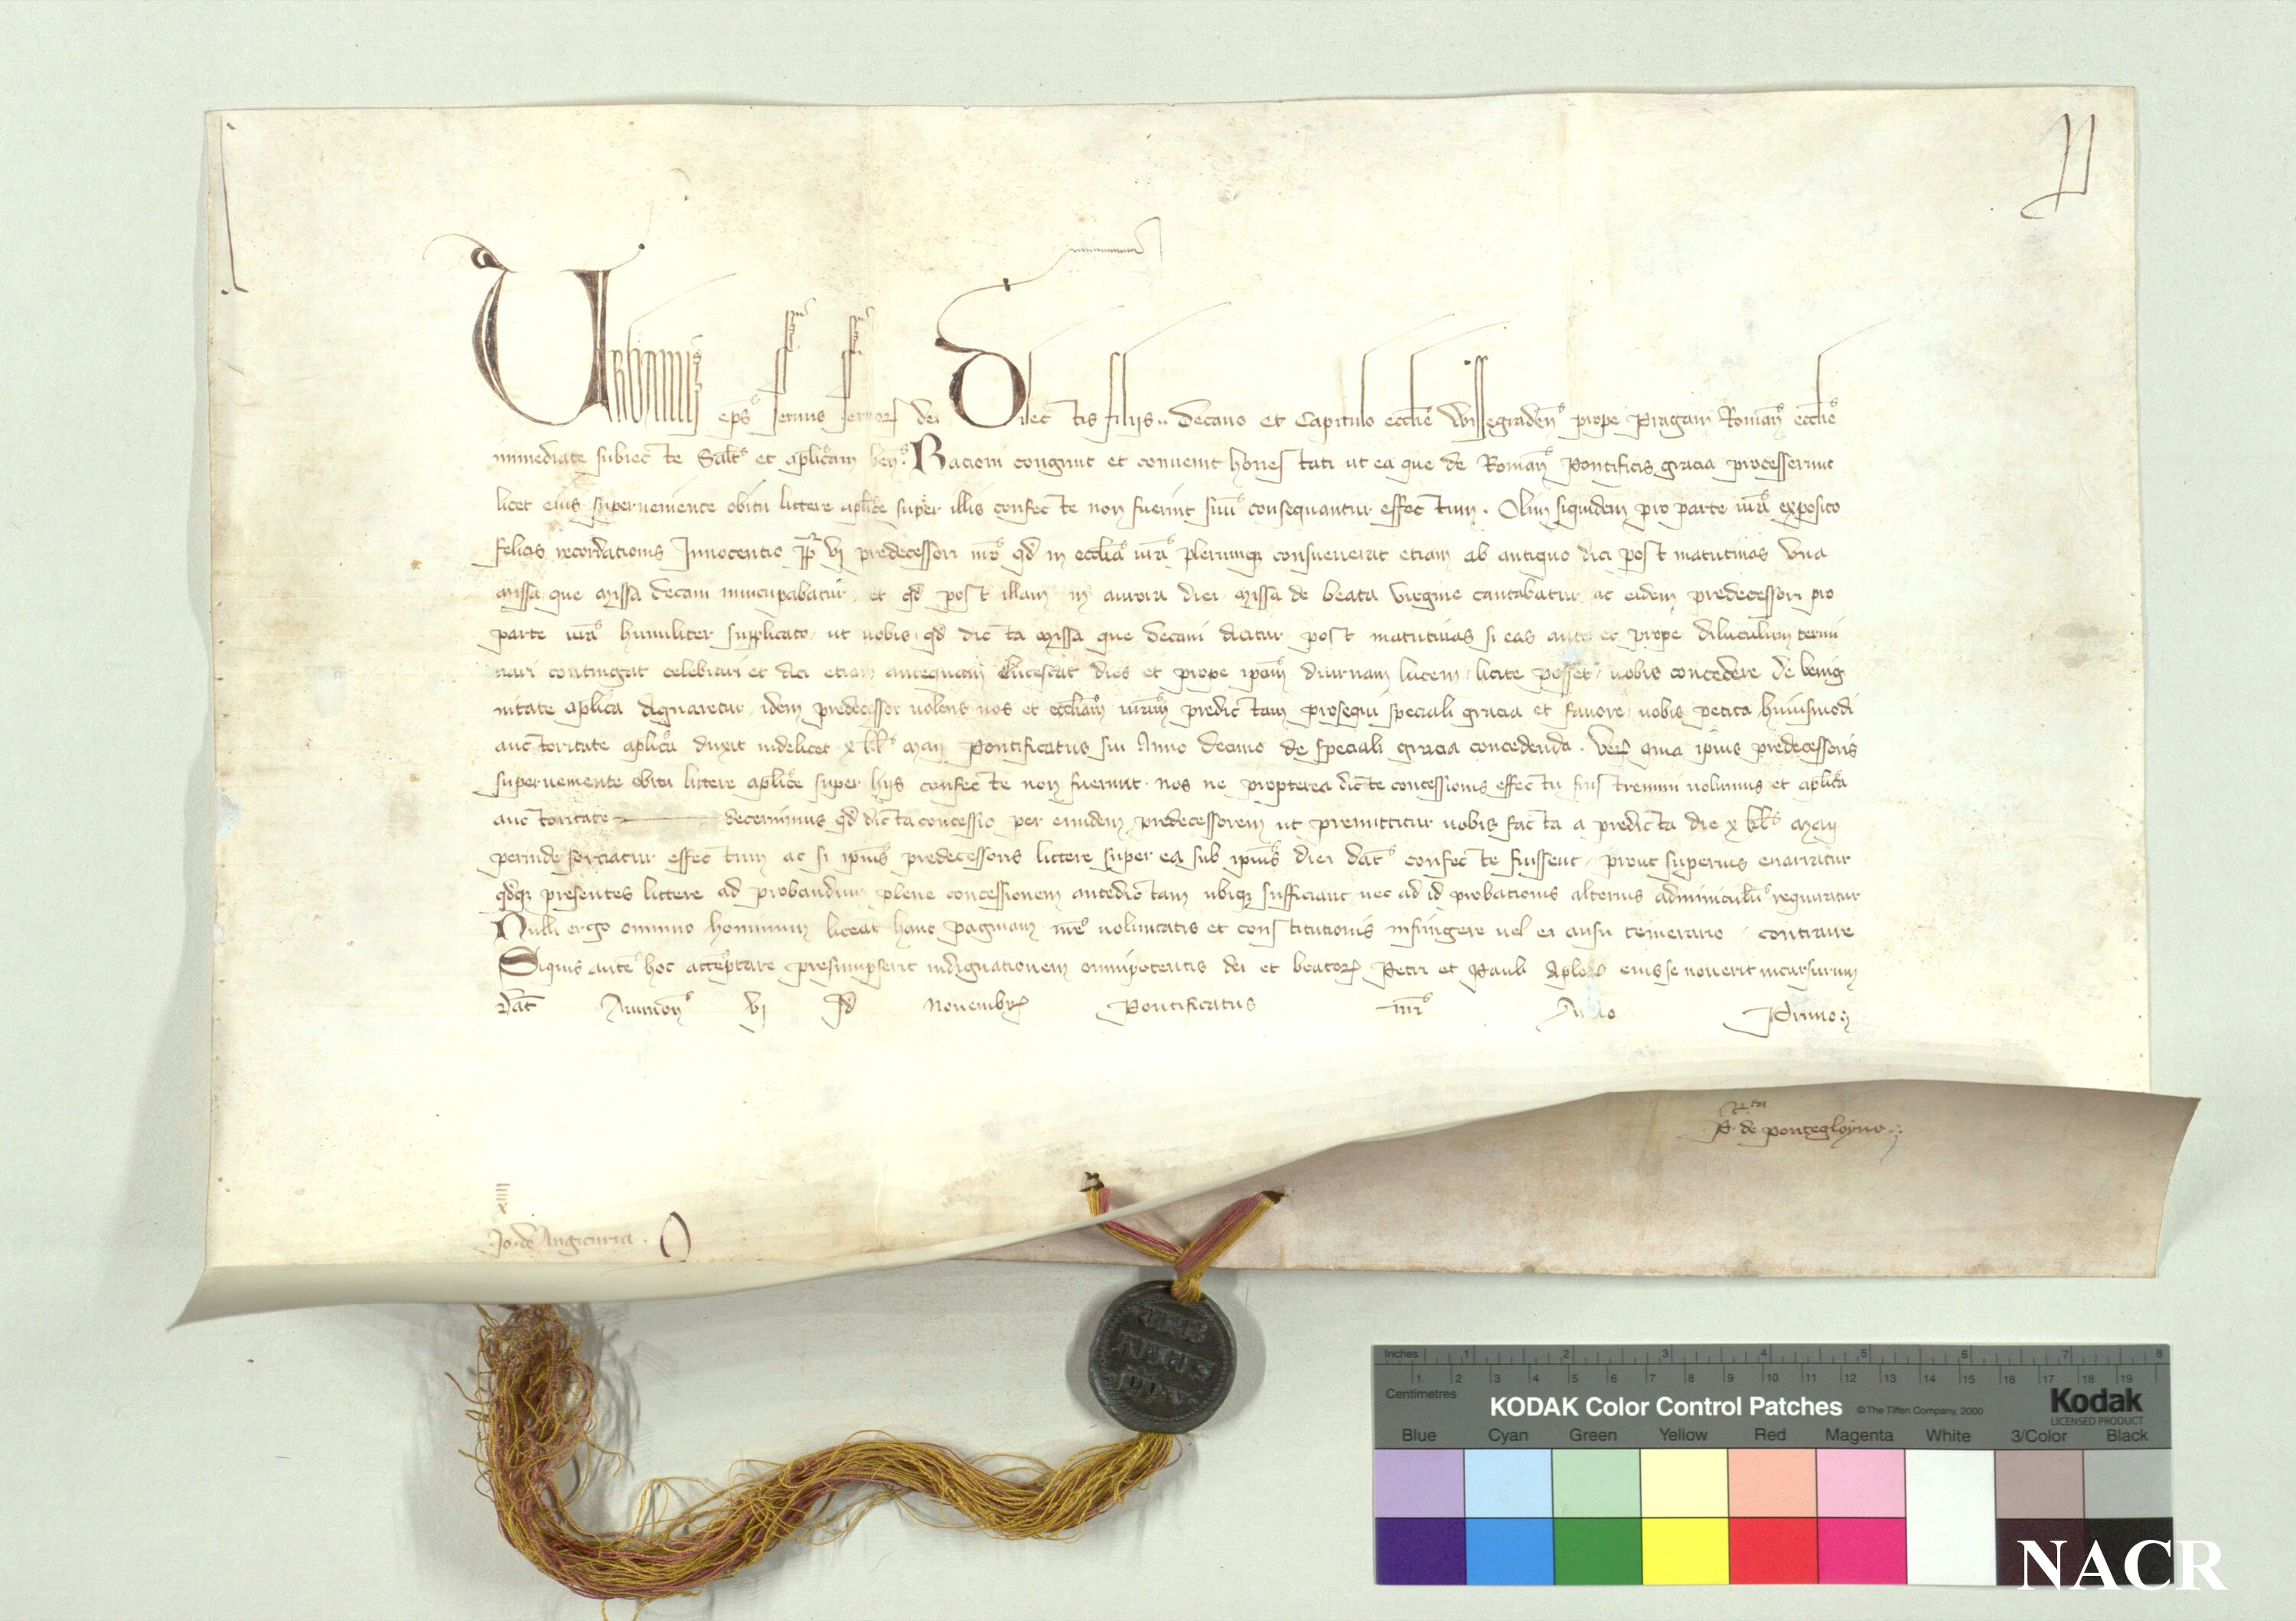 Urbanus eps seruus seruor dei Dilectis filijs .. Decano et Capitulo ecclie Wissegraden prope Pragam Roman ecclie
immediate subiecte Salt et aplicam ben. Racioni congruit et conuenit honestati ut ea que de Roman Pontificis gracia processerunt
licet eius superueniente obitu littere aplice super illis confecte non fuerint suu consequantur effectum. Olim siquidem pro parte vra exposito
felicis recordationis Innocentio pp vj predecessori nro qd in ecclia vra plerumq consueuerat etiam ab antiquo dici post matutinas una
missa que missa decani nuncupabatur et qd post illam in aurora diei missa de beata virgine cantabatur ac eidem predecessori pro
parte vra humiliter supplicato ut uobis qd dicta missa que decani dicitur post matutinas si eas ante et prope diluculum termi
nari contingat celebrari et dici etiam antequam elucescat dies et prope ipam diurnam lucem licite posset uobis concedere de benig
nitate aplica dignaretur idem predecessor uolens uos et eccliam vram predictam prosequi speciali gracia et fauore uobis petita huiusmodi
auctoritate aplica duxit videlicet x kls maij Pontificatus sui Anno decimo de speciali gracia concedenda. Ver quia ipius predecessoris
superueniente obitu littere aplice super hijs confecte non fuerunt nos ne propterea dicte concessionis effectu frustremini uolumus et aplica
auctoritate decernimus qd dicta concessio per eundem predecessorem ut premittitur uobis facta a predicta die x kls maij
perinde sorciatur effectum ac si ipius predecessoris littere super ea sub ipius diei dat confecte fuissent prout superius enarratur
qdq presentes littere ad probandum plene concessionem antedictam ubiq sufficiant nec ad id probationis alterius adminiculu requiratur
Nulli ergo omnino hominum liceat hanc paginam nre uoluntatis et constitutionis infringere uel ei ausu temerario contraire
Siquis aute hoc attemptare presumpserit indignationem omnipotentis dei et beator Petri et Pauli Aplor eius se nouerit incursurum
Dat Auinion vj Id Nouembr Pontificatus nri Anno Primo
P. de pontegloyno
Jo. de Angicuria.
VRB
ANVS
PP V
Inches 1 2 3 4 5 6 7 8
1 2 3 4 5 6 7 8 9 10 11 12 13 14 15 16 17 18 19
Centimetres
KODAK Color Control Patches © The Tiffen Company, 2000 Kodak
LICENSED PRODUCT
Blue Cyan Green Yellow Red Magenta White 3/Color Black
NACR